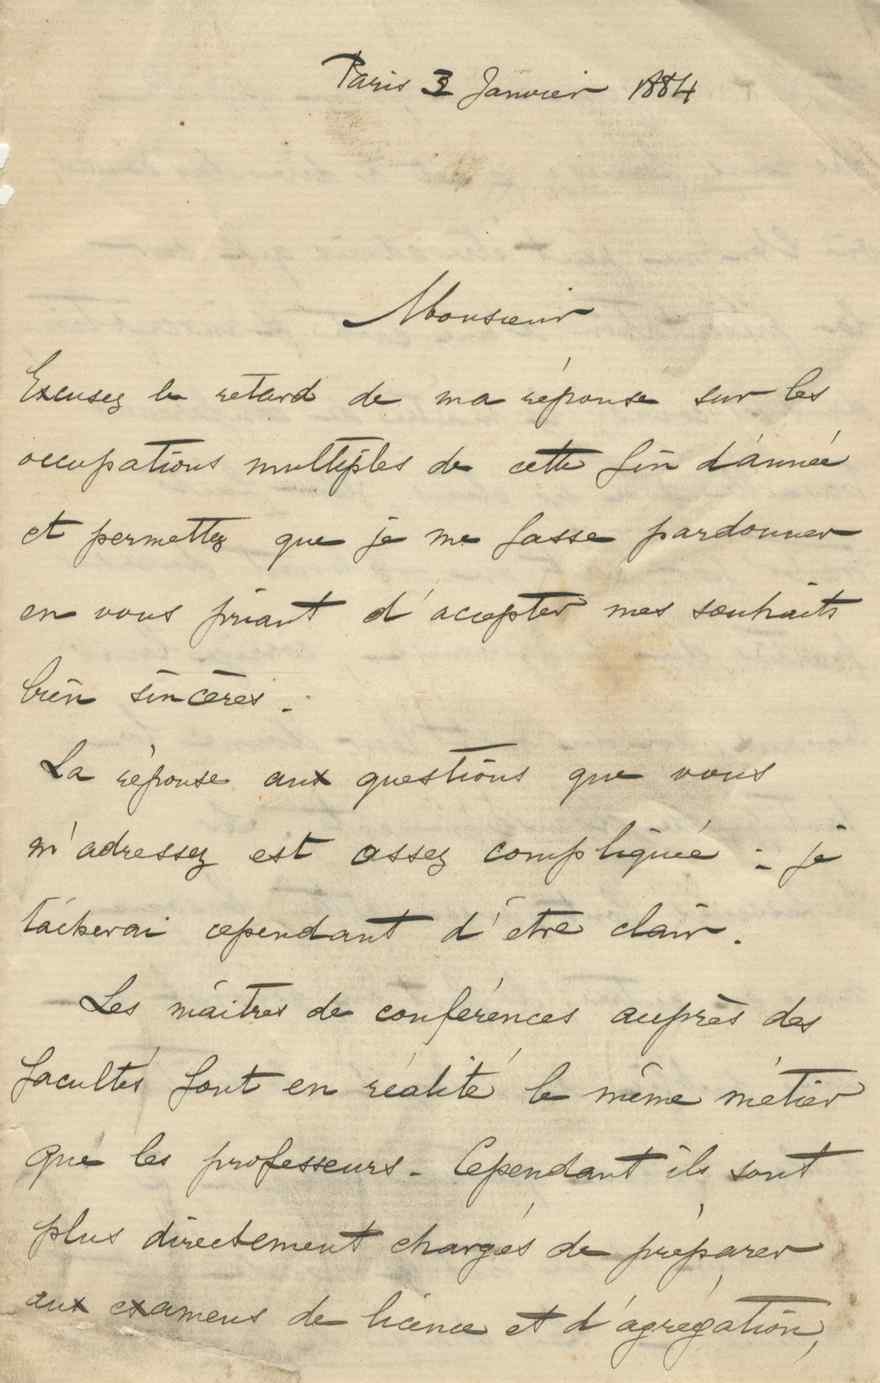 Paris 3 Janvier 1884
Monsieur
Excusez le retard de ma réponse sur les
occupations multiples de cette fin d'année
et permettez que je me fasse pardonner
en vous priant d'accepter mes souhaits
bien sincères.
La réponse aux questions que vous
m'adressez est assez compliquée : je
tâcherai cependant d'être clair.
Les maîtres de conférences auprès des
facultés font en réalité le même métier
que les professeurs. Cependant ils sont
plus directement chargés de préparer
aux examens de licence et d'agrégation,